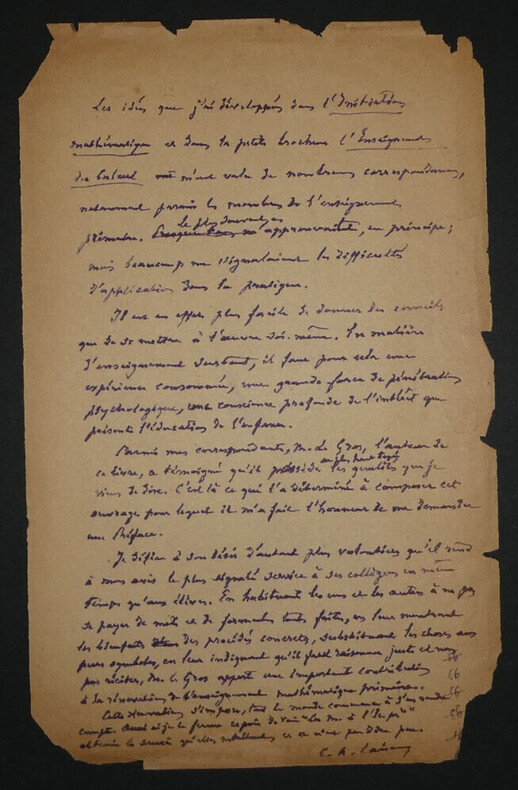 Les idées que j'ai développées dans l'Initiation
mathématique et dans la petite brochure l'Enseignement
du Calcul m'ont valu de nombreux correspondants,
notamment parmi les membres de l'enseignement
primaire. le plus souvent, on m'approuvait, en principe;
mais beaucoup me signalaient les difficultés
d'application dans la pratique.
Il est en effet plus facile de donner des conseils
que de se mettre à l'œuvre soi-même. En matière
d'enseignement surtout, il faut pour cela une
expérience consommée, une grande force de pénétration
psychologique, une conscience profonde de l'intérêt que
présente l'éducation de l'enfance.
Parmi mes correspondants, M. Le Gros, l'auteur de
ce livre, a témoigné qu'il possède au plus haut degré les qualités que je
viens de dire. C'est là ce qui l'a déterminé à composer cet
ouvrage pour lequel il m'a fait l'honneur de me demander
une Préface.
Je défère à son désir d'autant plus volontiers qu'il rend
à mon avis le plus signalé service à ses collègues en même
temps qu'aux élèves. En habituant les uns et les autres à ne pas
se payer de mots et de formules toutes faites, en leur montrant
les bienfaits des procédés concrets, substituant les choses aux
purs symboles, en leur indiquant qu'il faut raisonner juste et non
pas réciter, M. Le Gros apporte une importante contribution
à la rénovation de l'enseignement mathématique primaire.
Cette rénovation s'impose, tout le monde commence à s'en rendre
compte. Aussi ai-je le ferme espoir de voir
obtenir le succès
C. A. Laisant